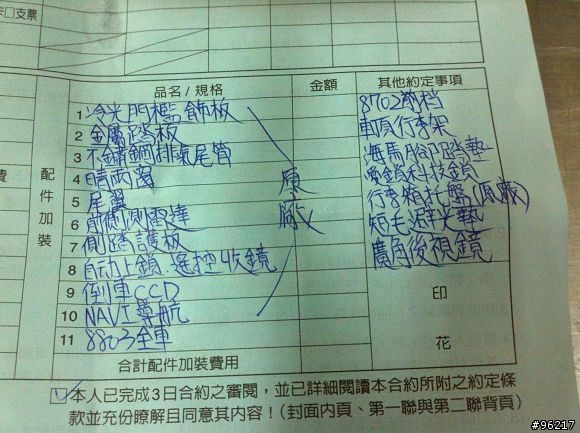 卡□支票
品名／規格 金額 其他約定事項
配件加裝
費
1 冷光門檻飾板
2 金屬踏板
3 不鏽鋼排氣尾管
4 晴雨窗
5 尾翼
6 前側測雷達
7 側踏護板
8 自動上鎖.遙控收鏡
9 倒車CCD
10 NAVI導航
11 8803全車
原廠
8702前档
車頂行李架
海馬腳踏墊
愛鎖科技鎖
行李箱托盤(原廠)
短毛避光墊
廣角後視鏡
印
花
合計配件加裝費用
本人已完成3日合約之審閱，並已詳細閱讀本合約所附之約定條
款並充份瞭解且同意其內容！(封面內頁、第一聯與第二聯背頁)
#96217